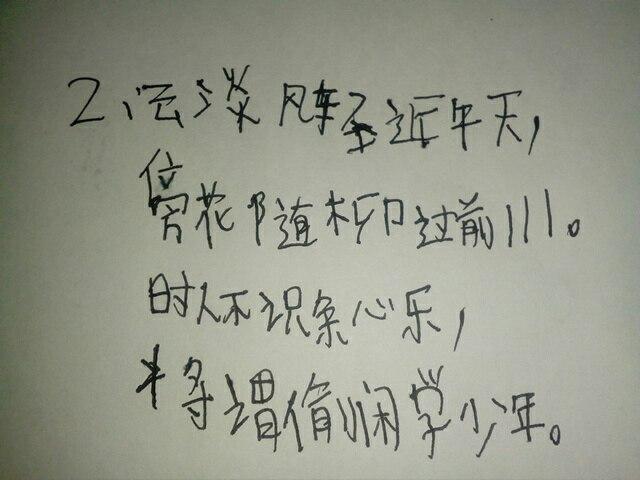 2、云淡风轻近午天,
傍花随柳过前川。
时人不识余心乐,
将谓偷闲学少年。